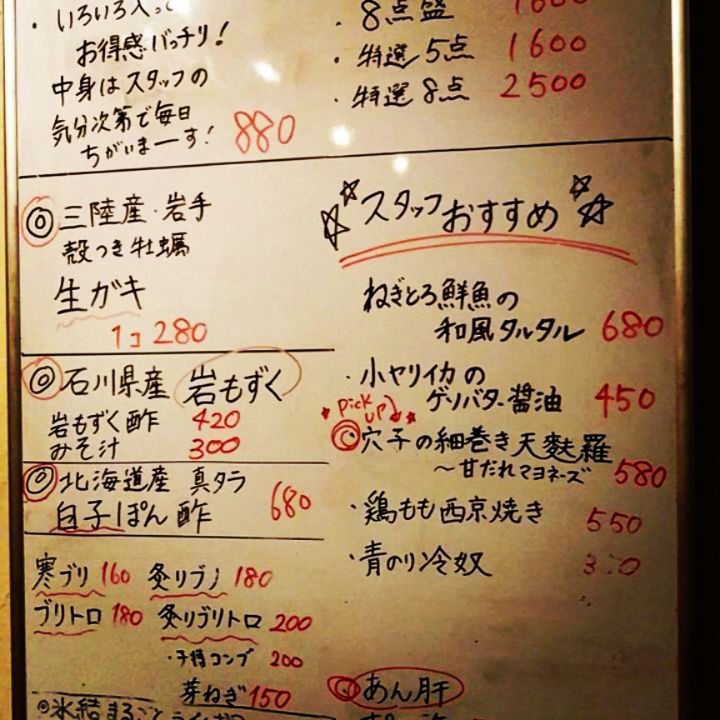 ・いろいろ入って
お得感バッチリ!
中身はスタッフの
気分次第で毎日
ちがいまーす! 880
・8点盛
・特選5点 1600
・特選8点 2500
◎三陸産・岩手
殻つき牡蠣
生ガキ
1コ 280
◎石川県産 岩もずく
岩もずく酢 420
みそ汁 300
◎北海道産 真タラ
白子ぽん酢 680
寒ブリ 160 炙りブリ 180
ブリトロ 180 炙りブリトロ 200
・子持コンブ 200
芽ねぎ 150
◎氷結まるごと
☆☆スタッフおすすめ☆☆
ねぎとろ鮮魚の
和風タルタル 680
・小ヤリイカの
ゲソバター醤油 450
Pick up♪
◎穴子の細巻き天麩羅
〜甘だれマヨネーズ 580
・鶏もも西京焼き 550
・青のり冷奴
◎あん肝